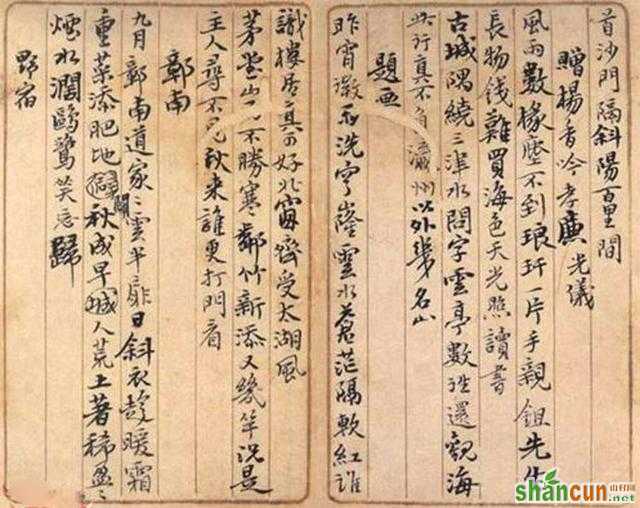 首沙門隔斜陽百里間
贈楊香吟孝廉光儀
風雨數椽塵不到琅玕一片手親鉏先生
長物錢難買海色天光照讀書
古城隅繞三津水問字雲亭數往還觀海
此行真不負瀛州以外幾名山
題画
昨宵雨洗穹窿雲水蒼茫隔軟紅誰
識樓居真可好北窗齊受太湖風
茅堂不勝寒鄰竹新添又幾竿況是
主人尋不見秋来誰更打門看
郭南
九月郭南道家雲半扉日斜衣趁暖霜
重菜添肥地闢秋成早人荒土著稀盈盈
煙水闊鷗鷺笑忘歸
野宿
shancun
.net